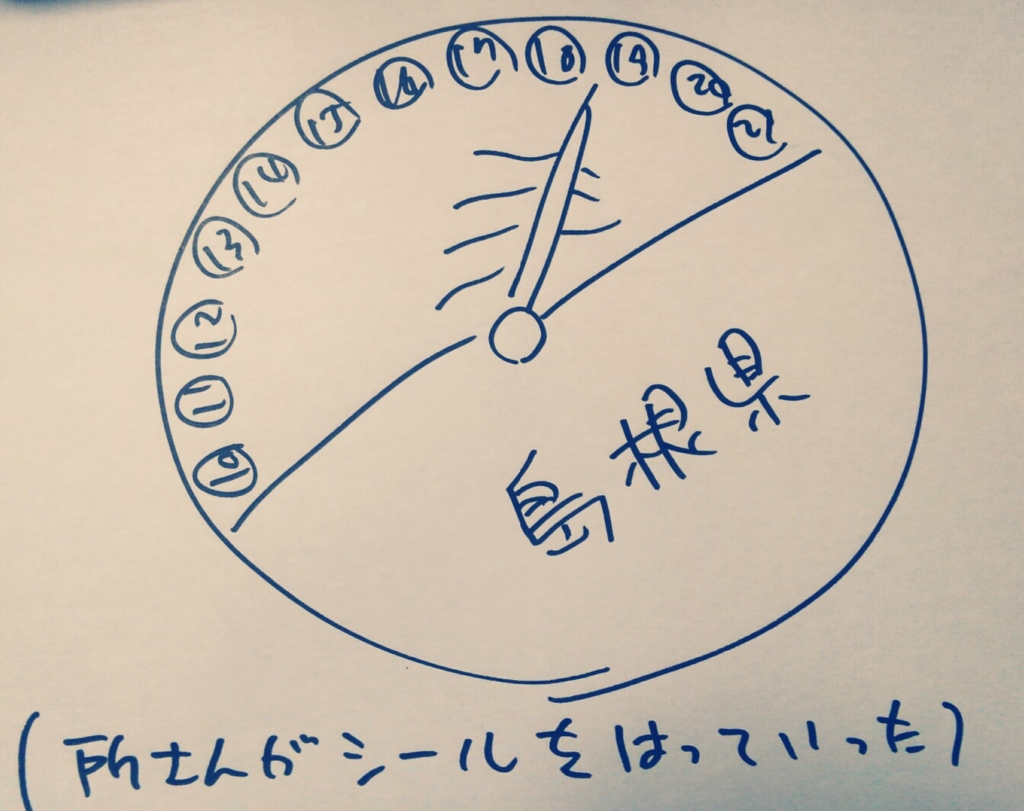 ⑩ ⑪ ⑫ ⑬ ⑭ ⑮ ⑯ ⑰ ⑱ ⑲ ⑳ ㉑
島根県
(所さんがシールをはっていった)